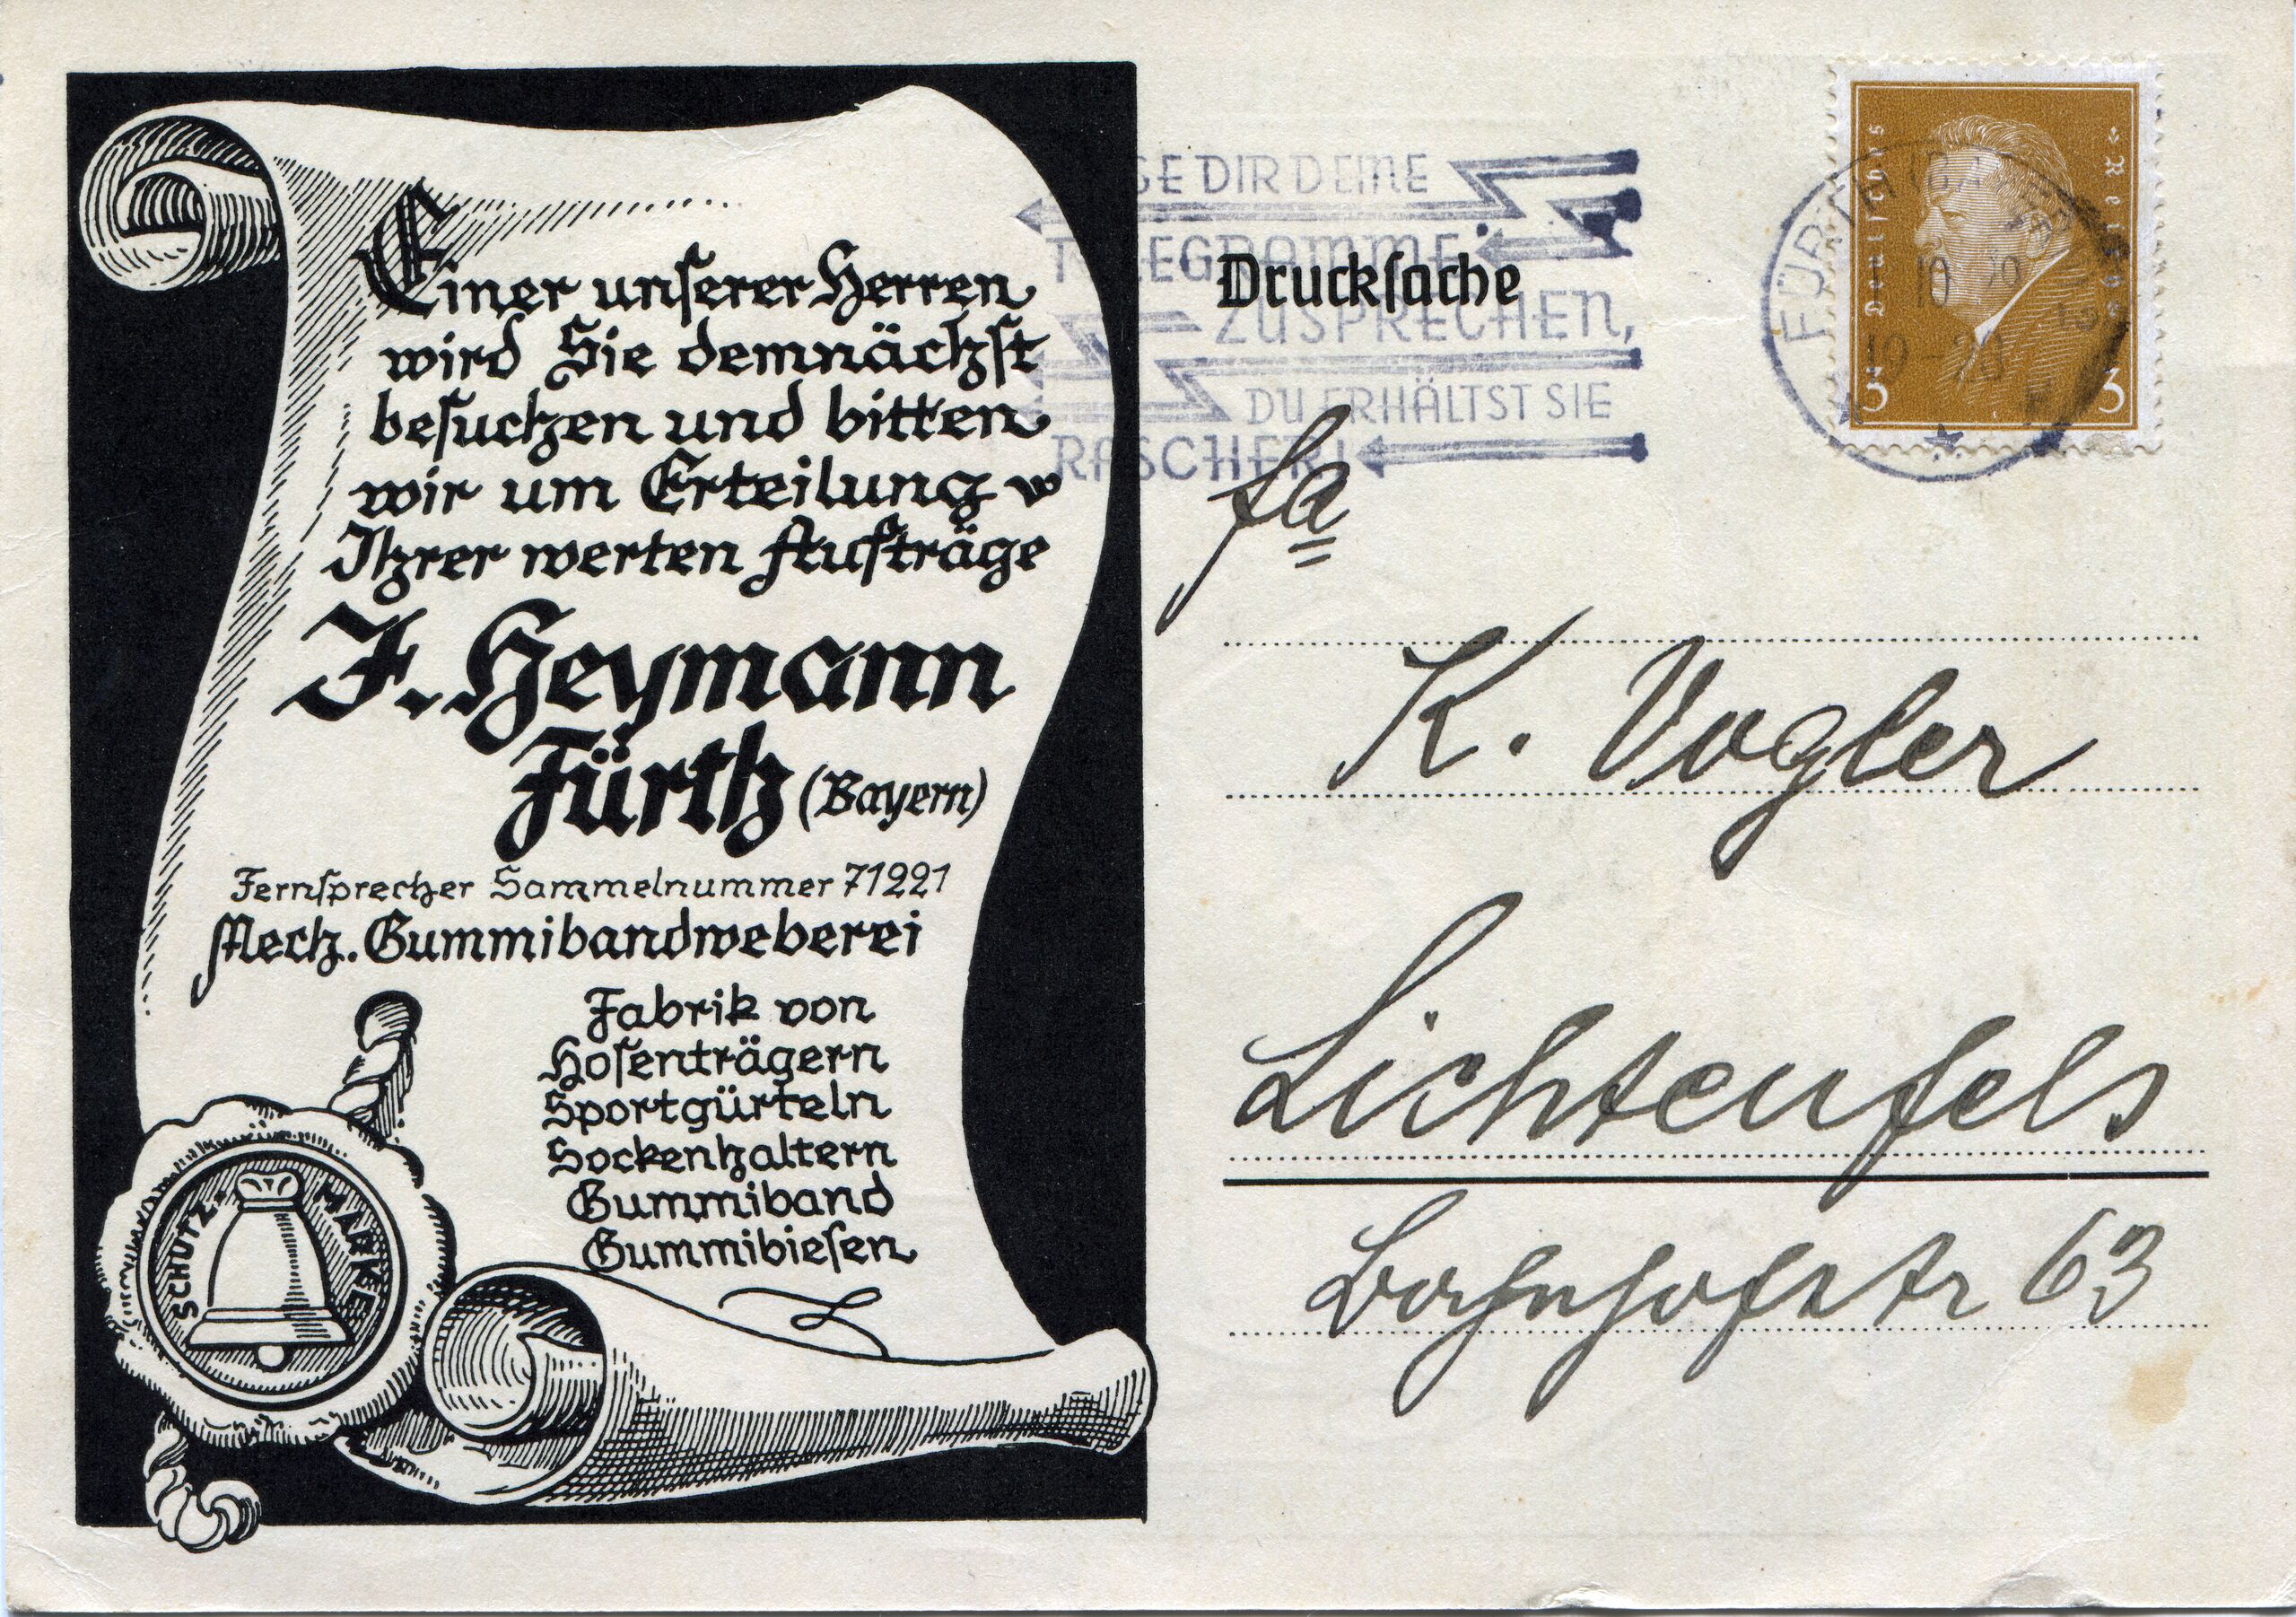 Einer unserer Herren
wird Sie demnächst
besuchen und bitten
wir um Erteilung
Ihrer werten Aufträge
J. Heymann
Fürth (Bayern)
Fernsprecher Sammelnummer 71221
Mech. Gummibandweberei
Fabrik von
Hosenträgern
Sportgürteln
Sockenhaltern
Gummiband
Gummibiesen
SCHUTZ-MARKE
DIR DEINE
TELEGRAMME
ZUSPRECHEN,
DU ERHÄLTST SIE
RASCHER!
Drucksache
Deutsches Reich
3 3
FÜRTH (BAY
Fa
K. Vogler
Lichtenfels
Bahnhofstr 63